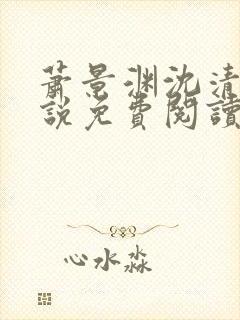 蕭景淵沈清
說免費閱讀
心水淼